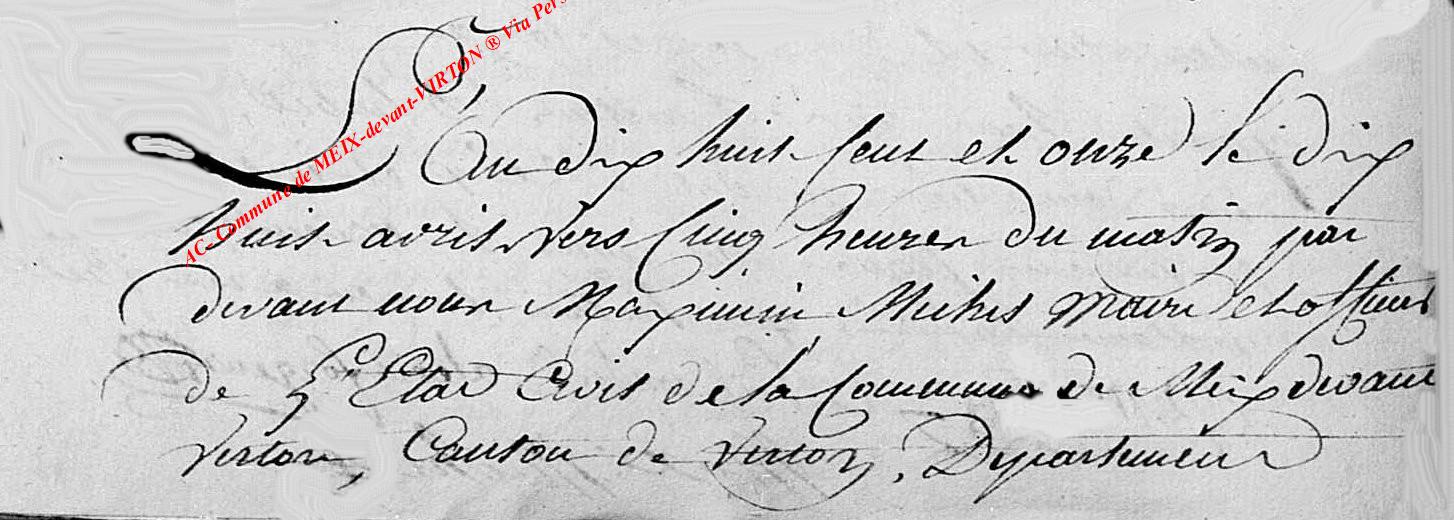 AC-Commune de MEIX-devant-VIRTON ® Via Pers
L'an dix huit cent et onze le dix
huit avril vers cinq heures du matin par
devant nous Maximin Michel Maire et officier
de L'Etat Civil de la Commune de Meix devant
Virton, Canton de Virton, Departement